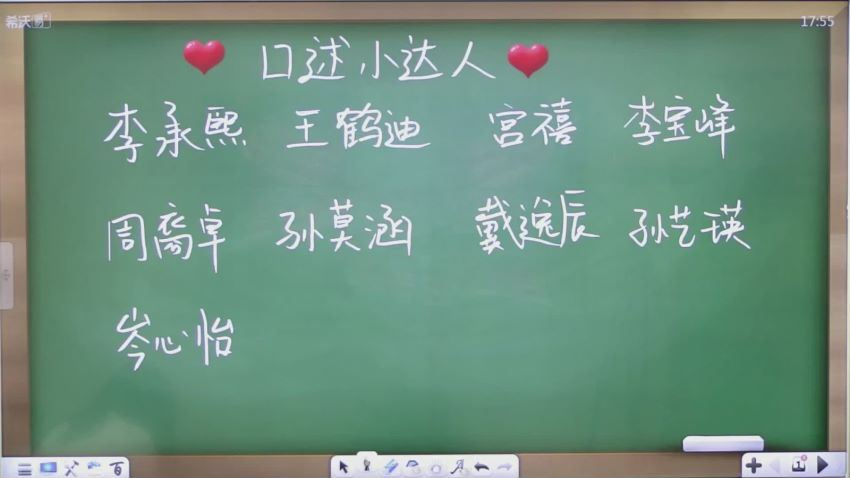 希沃易+
17:55
口述小达人
李承熙 王鹤迪 宫禧 李宝峰
周裔卓 孙莫涵 戴逸辰 孙艺瑛
岑心怡
百